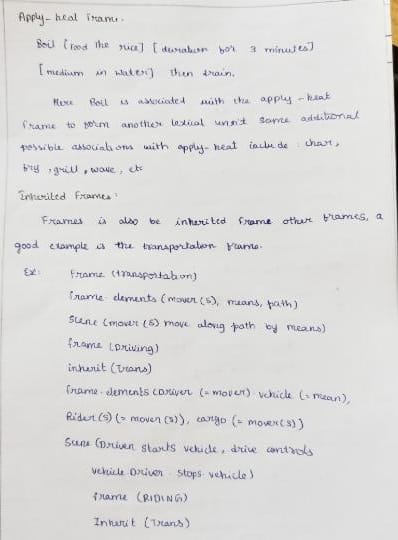 Apply-heat Frame.
Boil [Food the rice] [duration for 3 minutes]
[medium in water] then drain.
Here Boil is associated with the apply-heat
frame to form another lexical unit some additional
possible associations with apply-heat include: char,
fry, grill, wave, etc
Inherited Frames:
Frames is also be inherited frame other frames, a
good example is the transportation frame.
Ex: Frame (transportation)
frame-elements (mover(s), means, path)
Scene (mover(s) move along path by means)
frame (Driving)
inherit (Trans)
frame-elements (Driver (=mover) vehicle (=mean),
Rider(s) (= mover(s)), cargo (= mover(s))
Scene (Driver starts vehicle, drive controls
vehicle. Driver stops vehicle)
frame (RIDING)
Inherit (Trans)